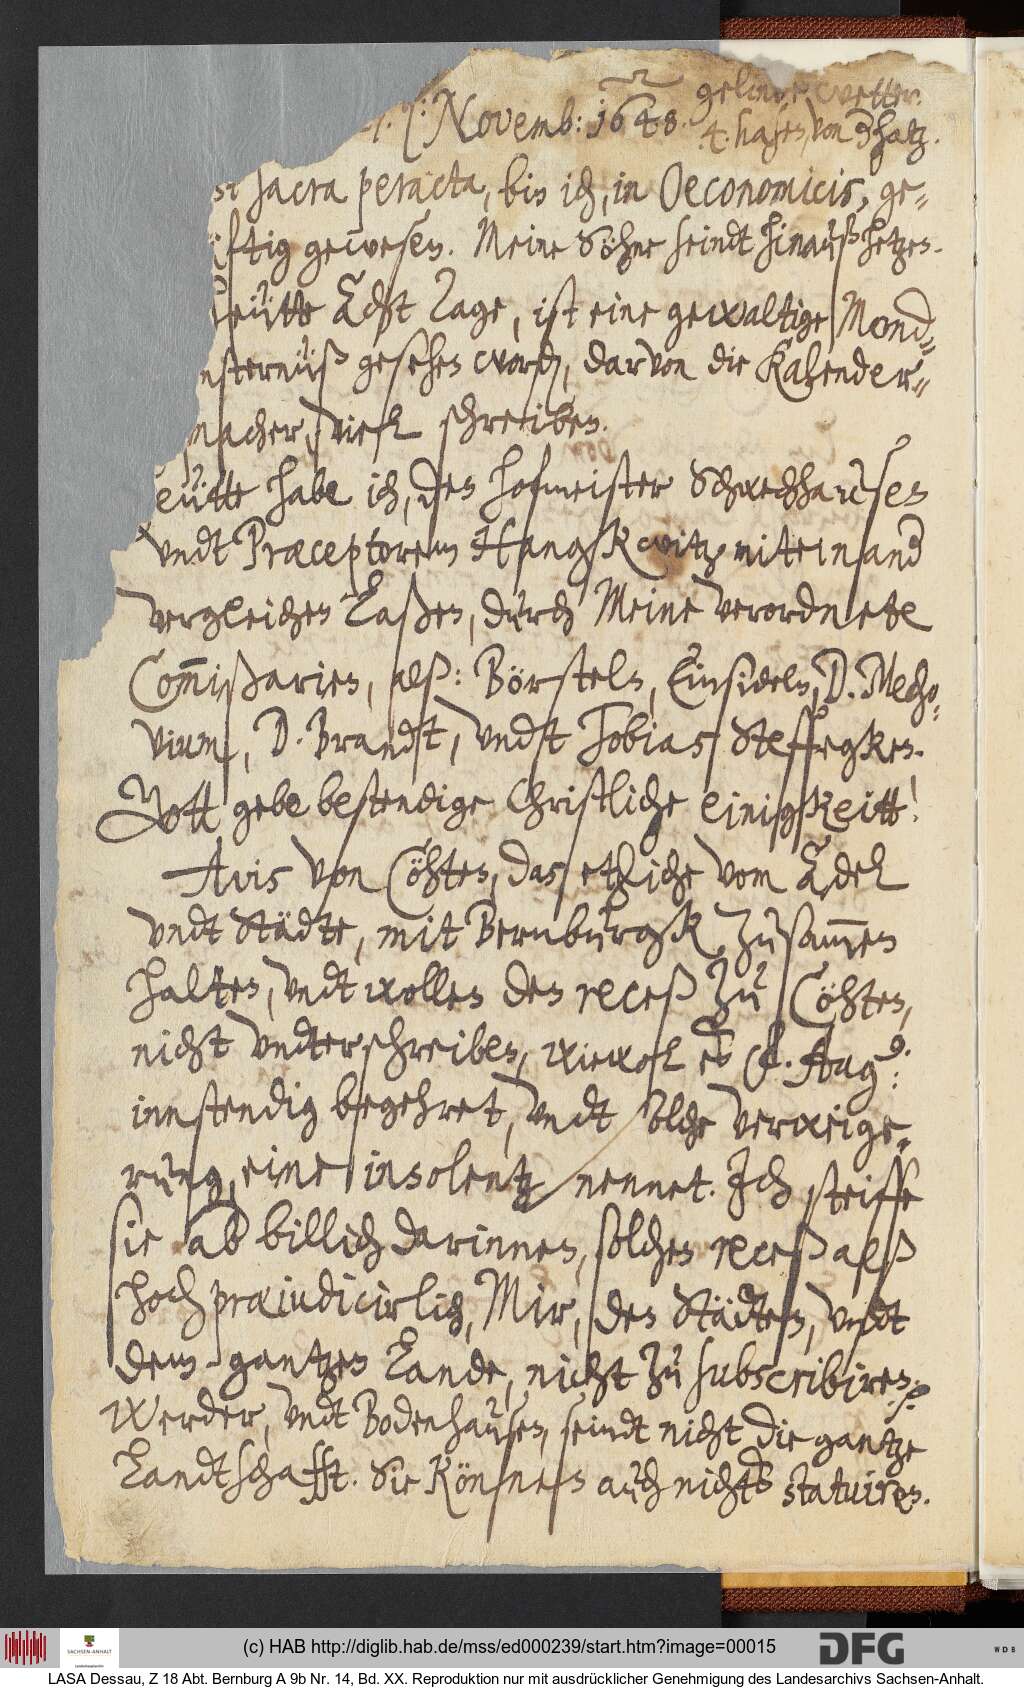 Novemb: 1648. gelinde wetter.
4. hasen, von der hatz.
st sacra peracta, bin ich, in Oeconomicis, ge-
ftig gewesen. Meine Söhne seindt hinauß hetzen.
eütte acht Tage, ist eine gewaltige Mond-
nsternüß gesehen worden, darvon die Kalender-
macher, viel schreiben.
eütte habe ich, den hofmeister Schwechhausen
undt Præceptorem Hangkwitz miteinander
vergleichen laßen, durch Meine verordnete
Com̄ißarien, alß: Börsteln, Einsideln, D. Mecho-
vium, D. Brandt, undt Tobias Steffegken.
Gott gebe bestendige Christliche einigkeitt!
Avis von Cöhten, das etzliche vom Adel
undt Städte, mit Bernburgk zusam̄en
halten, undt wollen den receß zu Cöhten,
nicht undterschreiben, wiewol es F. Aug:
innstendig begehret, undt solche verweige-
rung, eine insolentz nennet. Ich steiffe
sie aber billich darinnen, solchen receß alß
hochpræjudicirlich, Mir, den Städten, undt
dem gantzen Lande, nicht zu subscribiren.
Werder, undt Bodenhausen, seindt nicht die gantze
Landtschafft. Sie können auch nichts statuiren.
(c) HAB http://diglib.hab.de/mss/ed000239/start.htm?image=00015
SACHSEN-ANHALT
DFG
WDB
LASA Dessau, Z 18 Abt. Bernburg A 9b Nr. 14, Bd. XX. Reproduktion nur mit ausdrücklicher Genehmigung des Landesarchivs Sachsen-Anhalt.